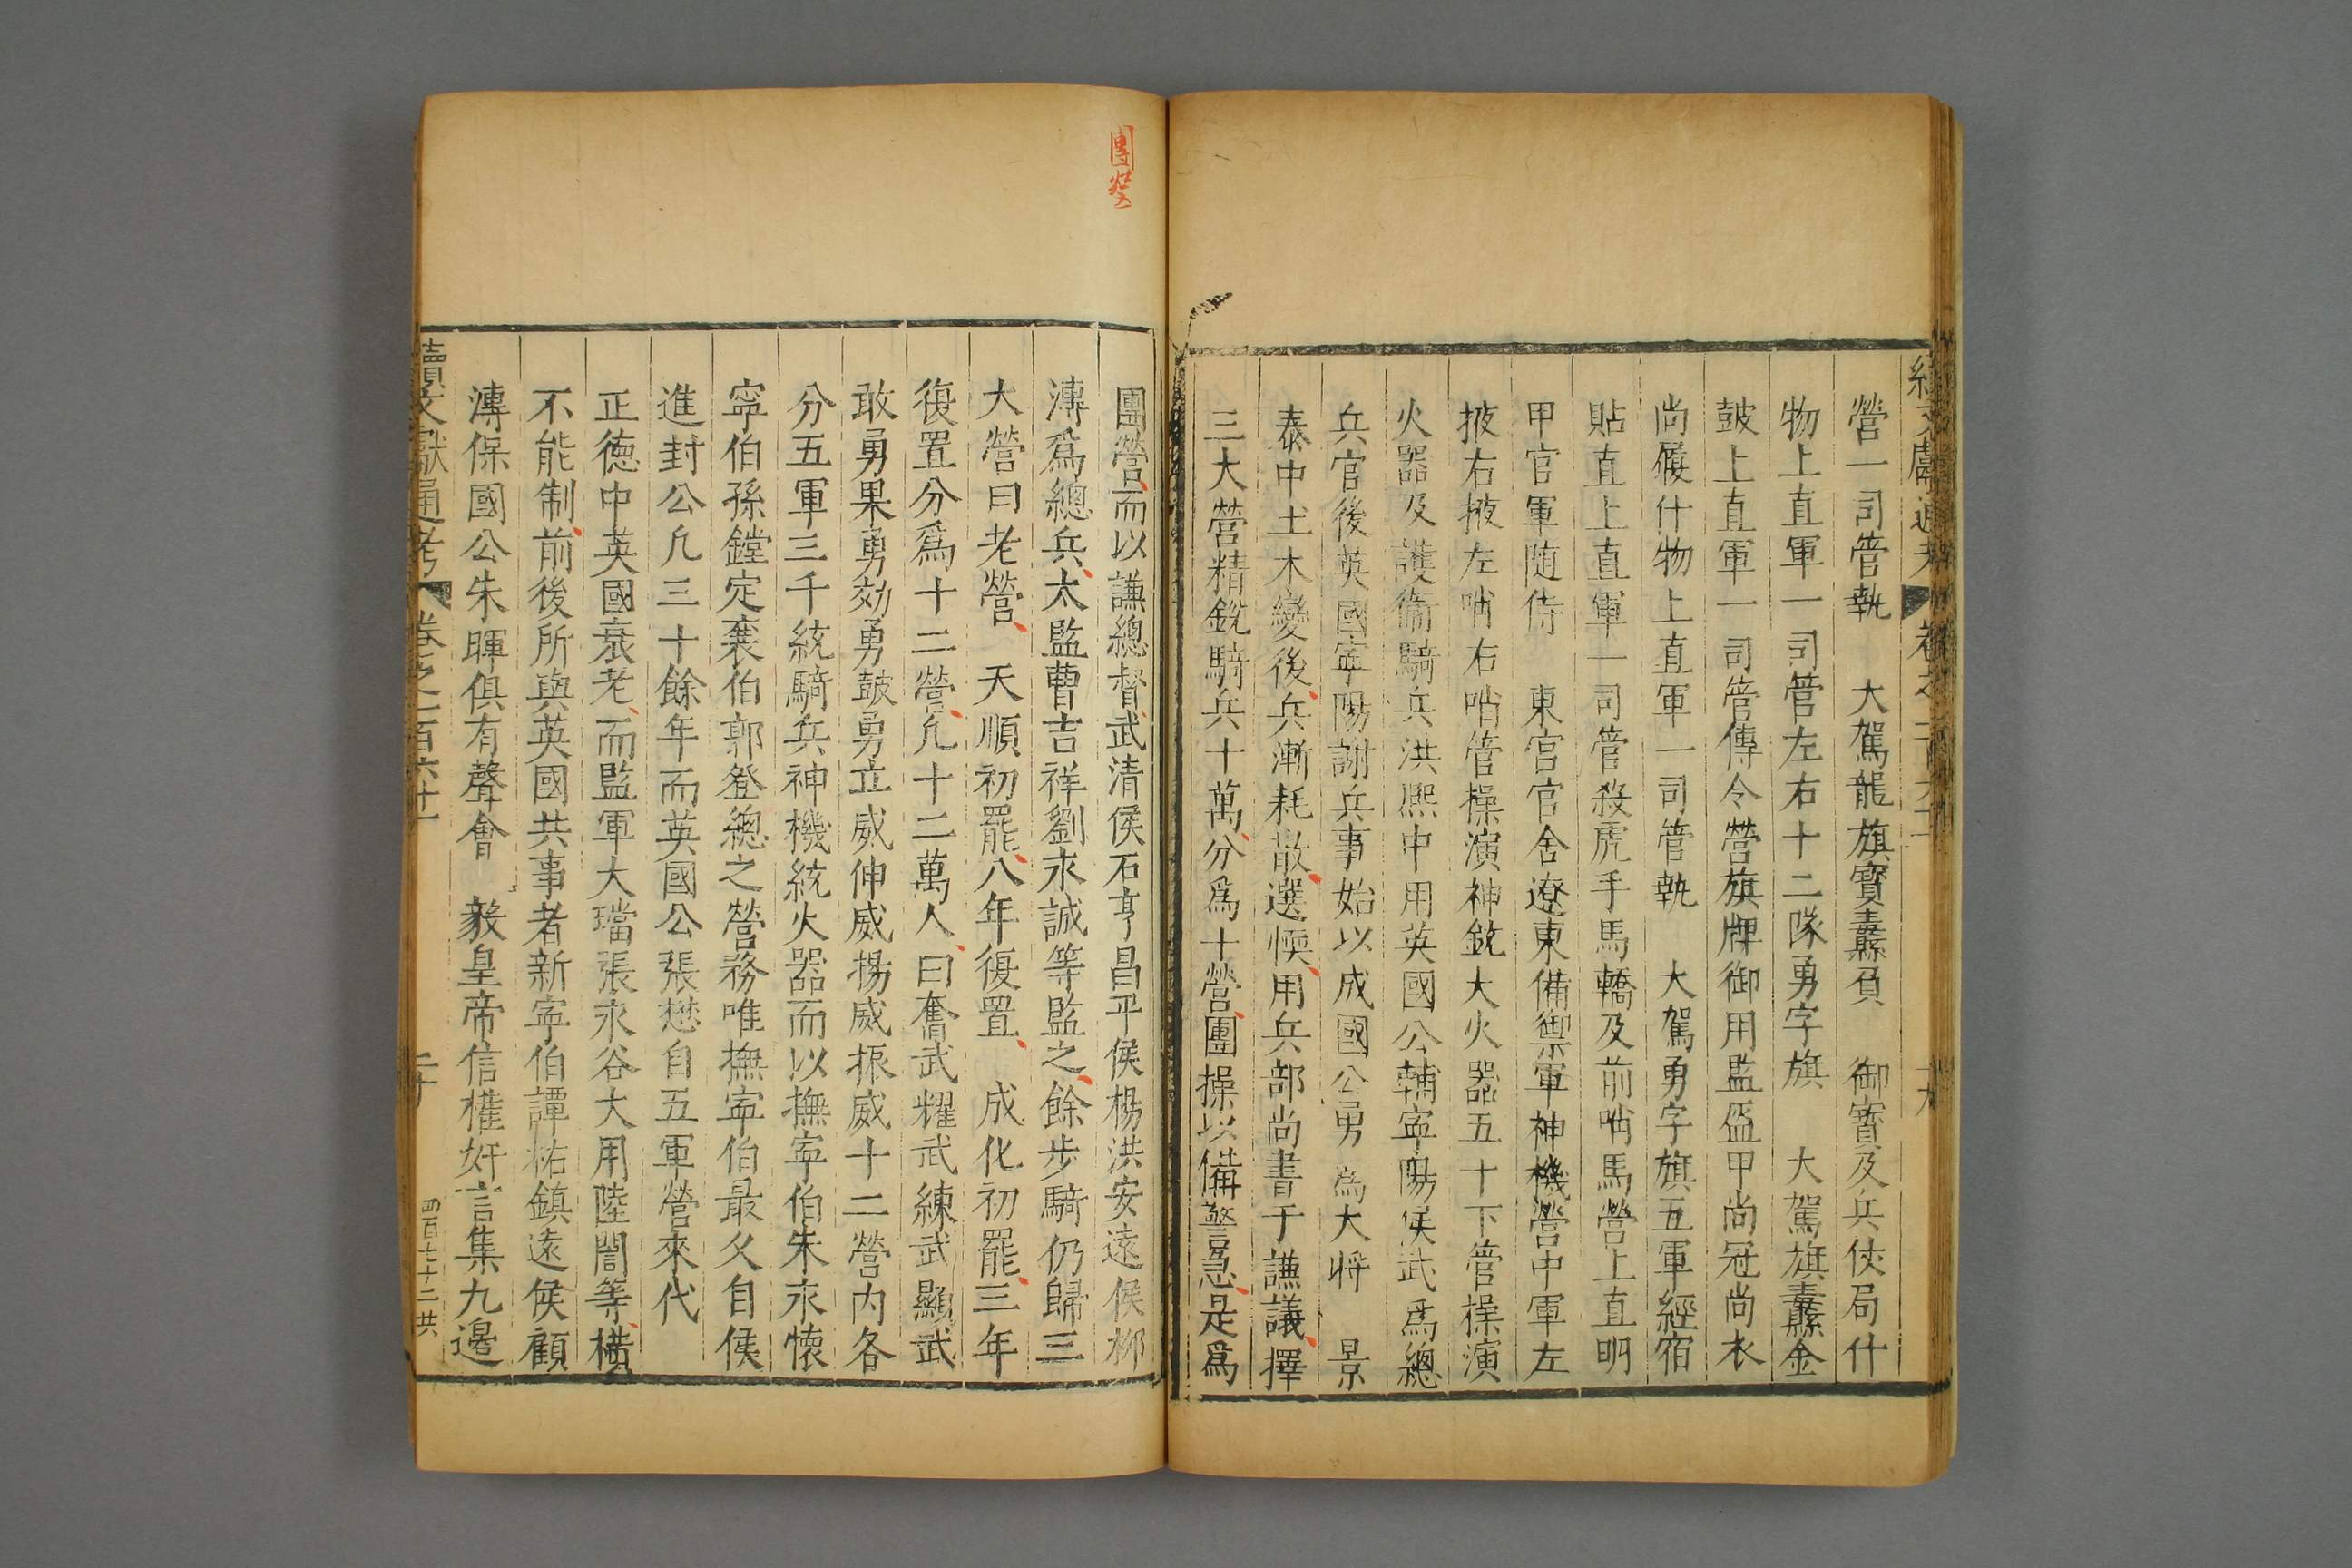 營一司管執　大駕龍旗寶纛負　御寶及兵仗局什
物上直軍一司管左右十二隊勇字旗　大駕旗纛金
皷上直軍一司管傳令營旗牌御用監盔甲尚冠尚衣
尚履什物上直軍一司管執　大駕勇字旗五軍經宿
貼直上直軍一司管殺虎手馬轎及前哨馬營上直明
甲官軍随侍　東宮官舍遼東備禦軍神機營中軍左
掖右掖左哨右哨管操演神銃大火器五十下管操演
火器及護衛騎兵洪熈中用英國公輔寧陽侯武爲總
兵官後英國寧陽謝兵事始以成國公勇爲大將　景
泰中土木變後兵漸耗散選愞用兵部尚書于謙議擇
三大營精銳騎兵十萬分爲十營團操以備警急是爲
團營
團營而以謙總督武清侯石亨昌平侯楊洪安遠侯柳
溥爲總兵太監曹吉祥劉永誠等監之餘步騎仍歸三
大營曰老營　天順初罷八年復置　成化初罷三年
復置分爲十二營凢十二萬人曰奮武耀武練武顯武
敢勇果勇効勇皷勇立威伸威揚威振威十二營内各
分五軍三千統騎兵神機統火器而以撫寧伯朱永懷
寧伯孫鏜定襄伯郭登總之營務唯撫寧伯最久自侯
進封公凢三十餘年而英國公張懋自五軍營來代
正德中英國衰老而監軍大璫張永谷大用陸誾等横
不能制前後所與英國共事者新寧伯譚祐鎮遠侯顧
溥保國公朱暉俱有聲會　毅皇帝信權奸言集九邊
續文獻通考　卷之一百六十一　二十　四百七十二　共